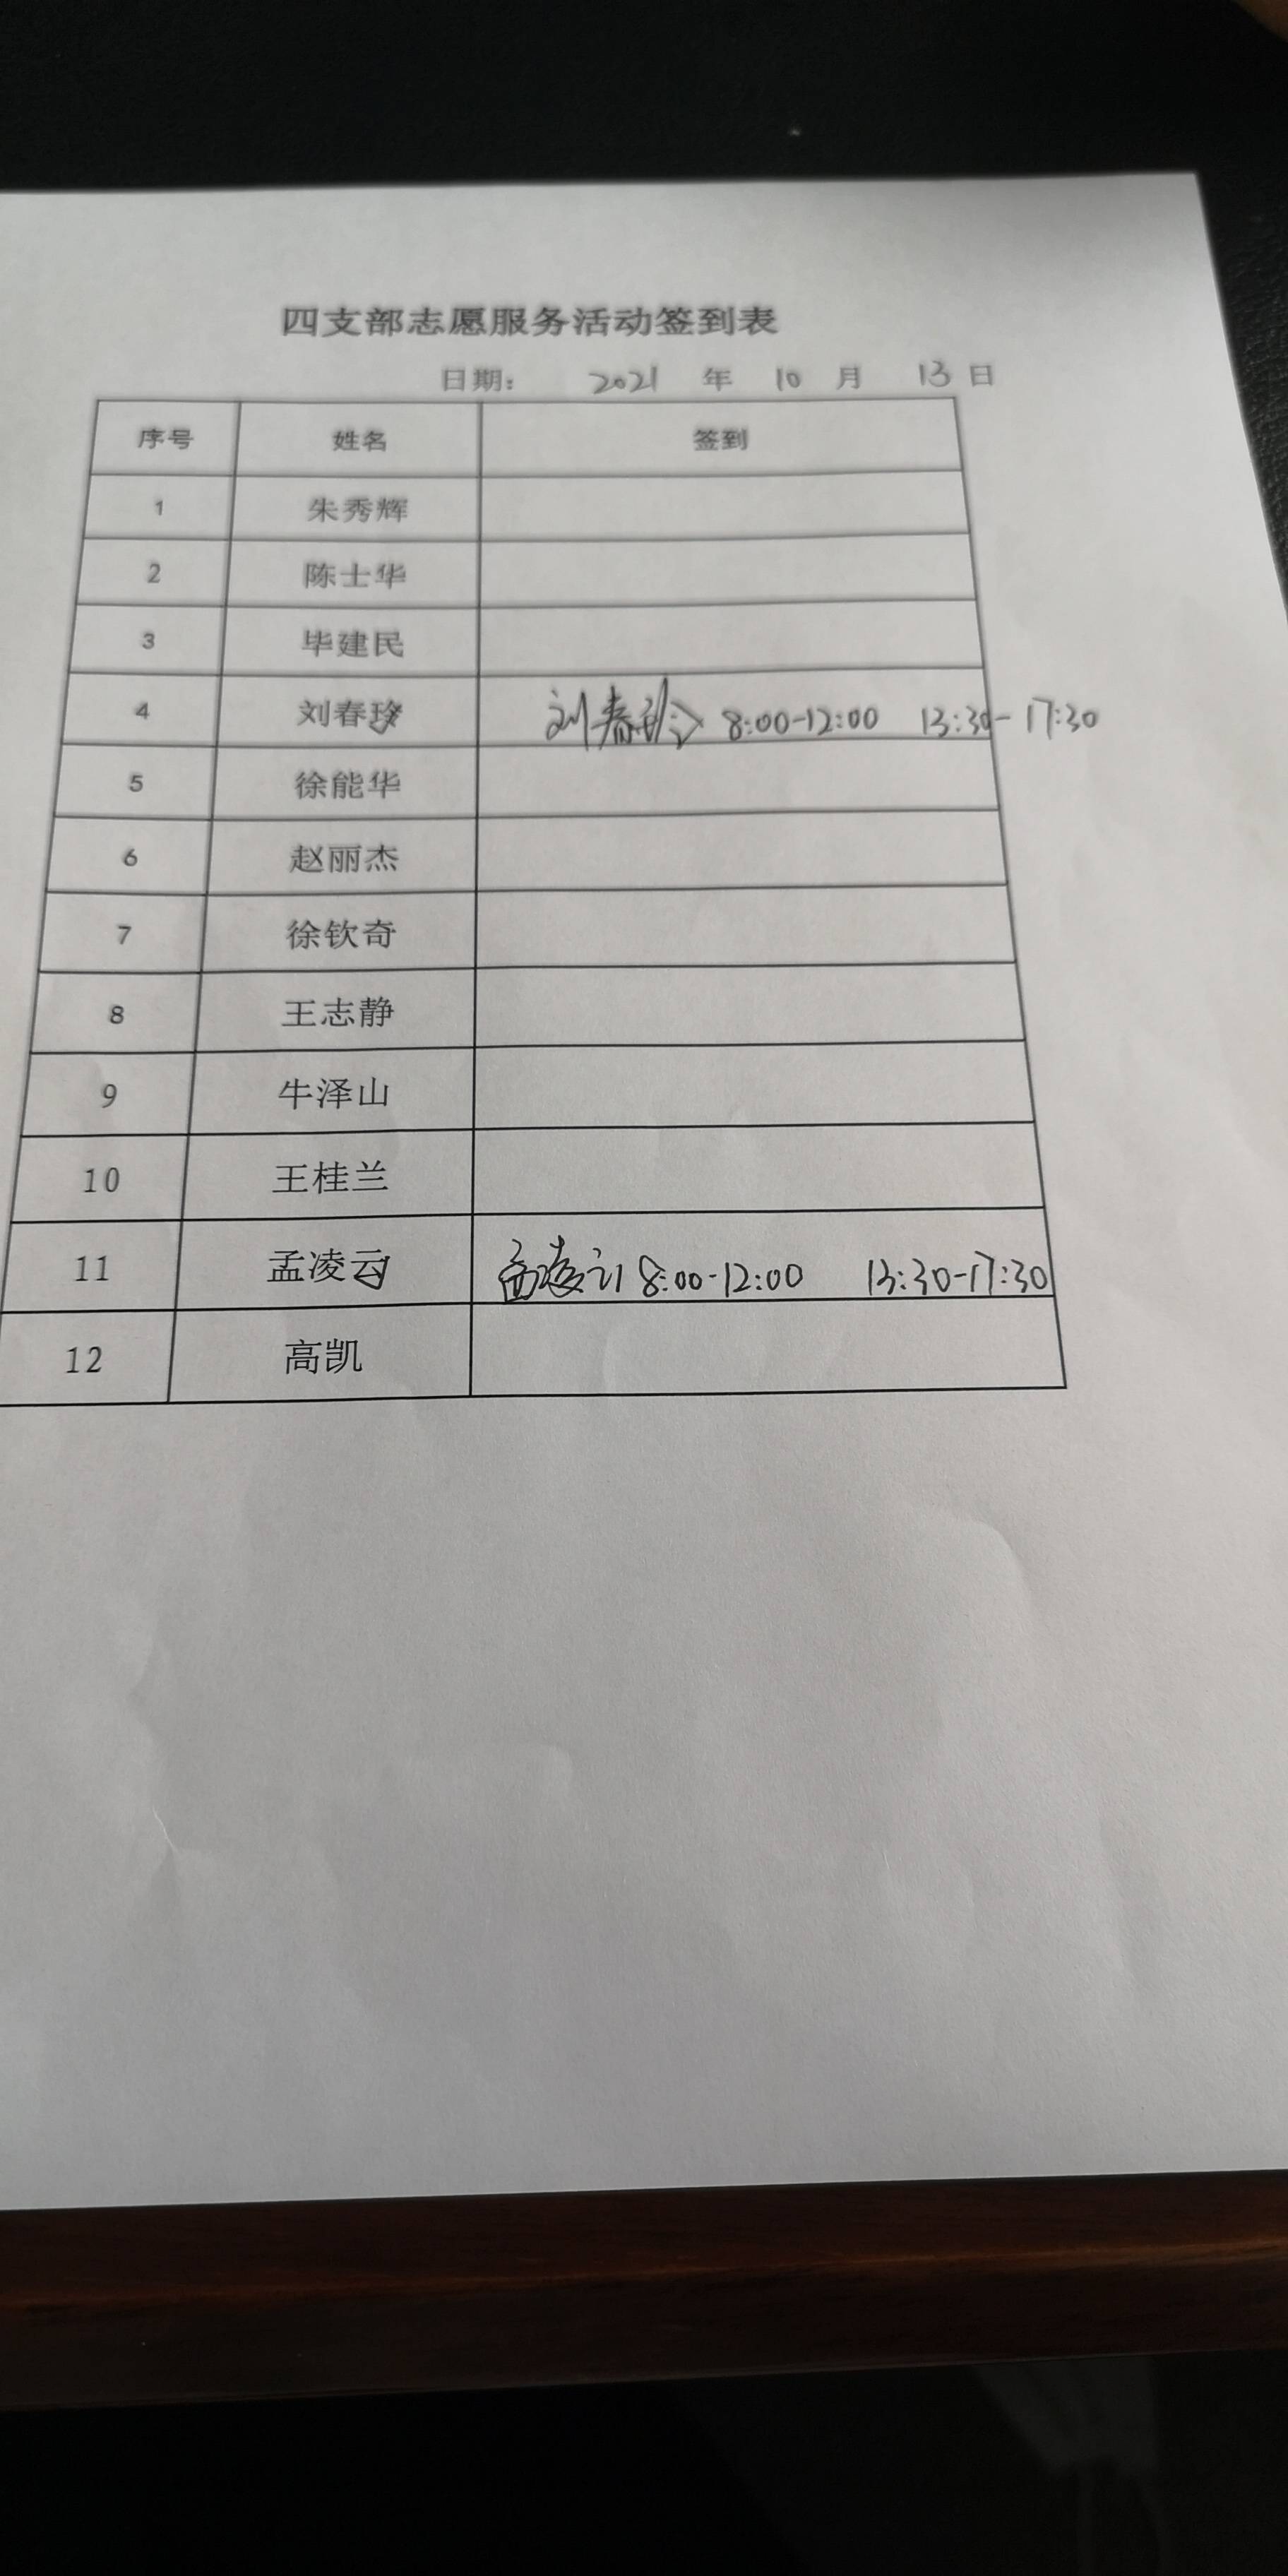 四支部志愿服务活动签到表
日期： 2021 年 10 月 13 日
序号 姓名 签到
1 朱秀辉
2 陈士华
3 毕建民
4 刘春玲 刘春玲 8:00-12:00 13:30-17:30
5 徐能华
6 赵丽杰
7 徐钦奇
8 王志静
9 牛泽山
10 王桂兰
11 孟凌云 孟凌云 8:00-12:00 13:30-17:30
12 高凯